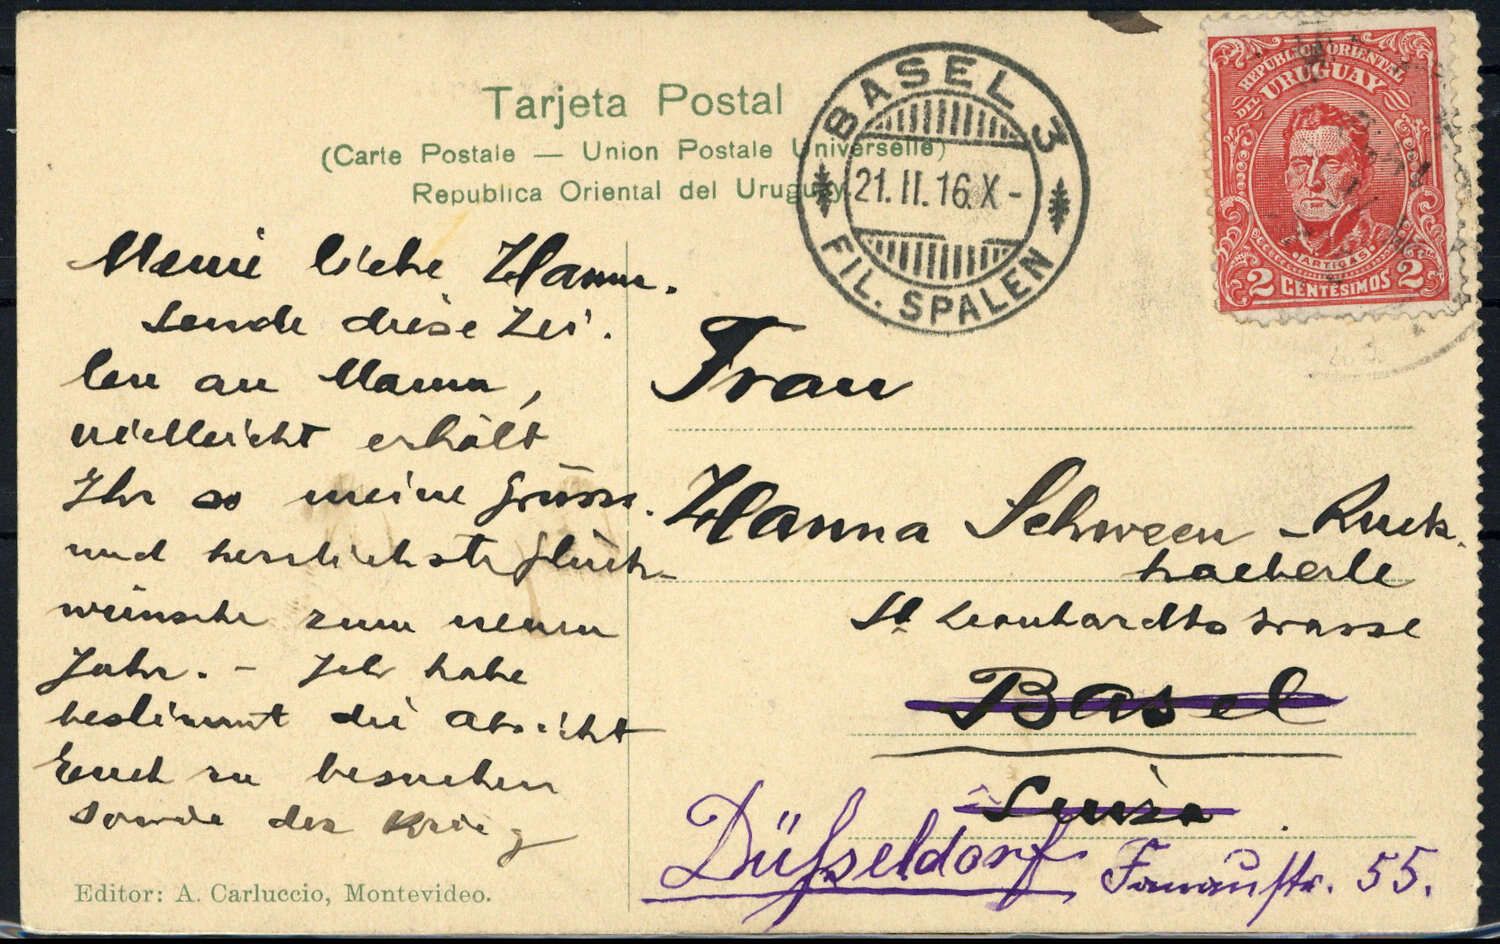 Tarjeta Postal
(Carte Postale — Union Postale Universelle)
Republica Oriental del Uruguay.
BASEL 3
21.II.16.X-
FIL. SPALEN
REPUBLICA ORIENTAL
DEL URUGUAY
ARTIGAS
2 CENTÉSIMOS 2
Meine liebe Hanna.
Sende diese Zei-
len an Mama,
vielleicht erhält
Ihr so meine Grüsse.
und herzlichste Glück-
wünsche zum neuen
Jahr. - Ich habe
bestimmt die Absicht
Euch zu besuchen
sowie der Krieg
Editor: A. Carluccio, Montevideo.
Frau
Hanna Schween - Ruck-
haeberle
St Leonhardtsstrasse
Basel
Suiza
Düsseldorf 55.